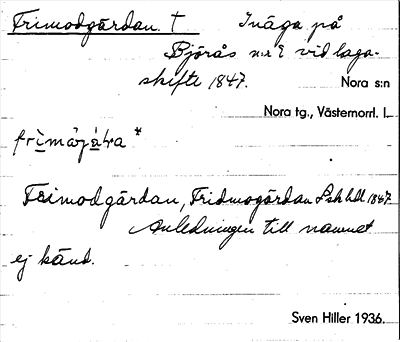 Frimodgärdan. † Inäga på
Björås n:r 2 vid laga-
skifte 1847. Nora s:n
Nora tg., Västernorrl. l.
Frimodgärdan, Fridmogärdan Lskhdl 1847
Anledningen till namnet
ej känd.
Sven Hiller 1936.